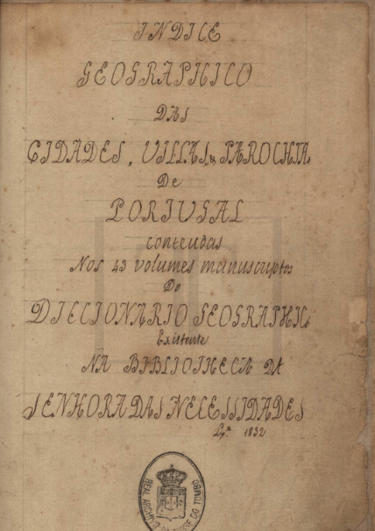 INDICE
GEOGRAPHICO
DAS
CIDADES, VILLAS, & PAROCHIA
De
PORTUGAL
conteudas
Nos 43 volumes manuscriptos
Do
DICCIONARIO GEOGRAPHI
Existente
NA BIBLIOTHECA DA
SENHORA DAS NECESSIDADES
Lxª 1832
REAL ARCHIVO DA TORRE DO TOMBO